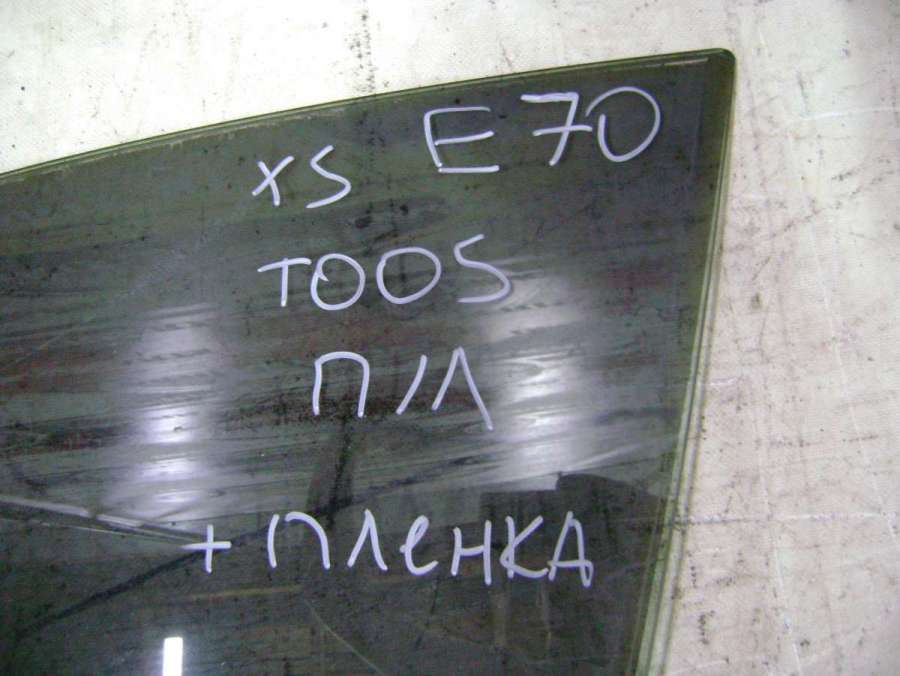 X5 E70
T005
П/Л
+ ПЛЕНКА